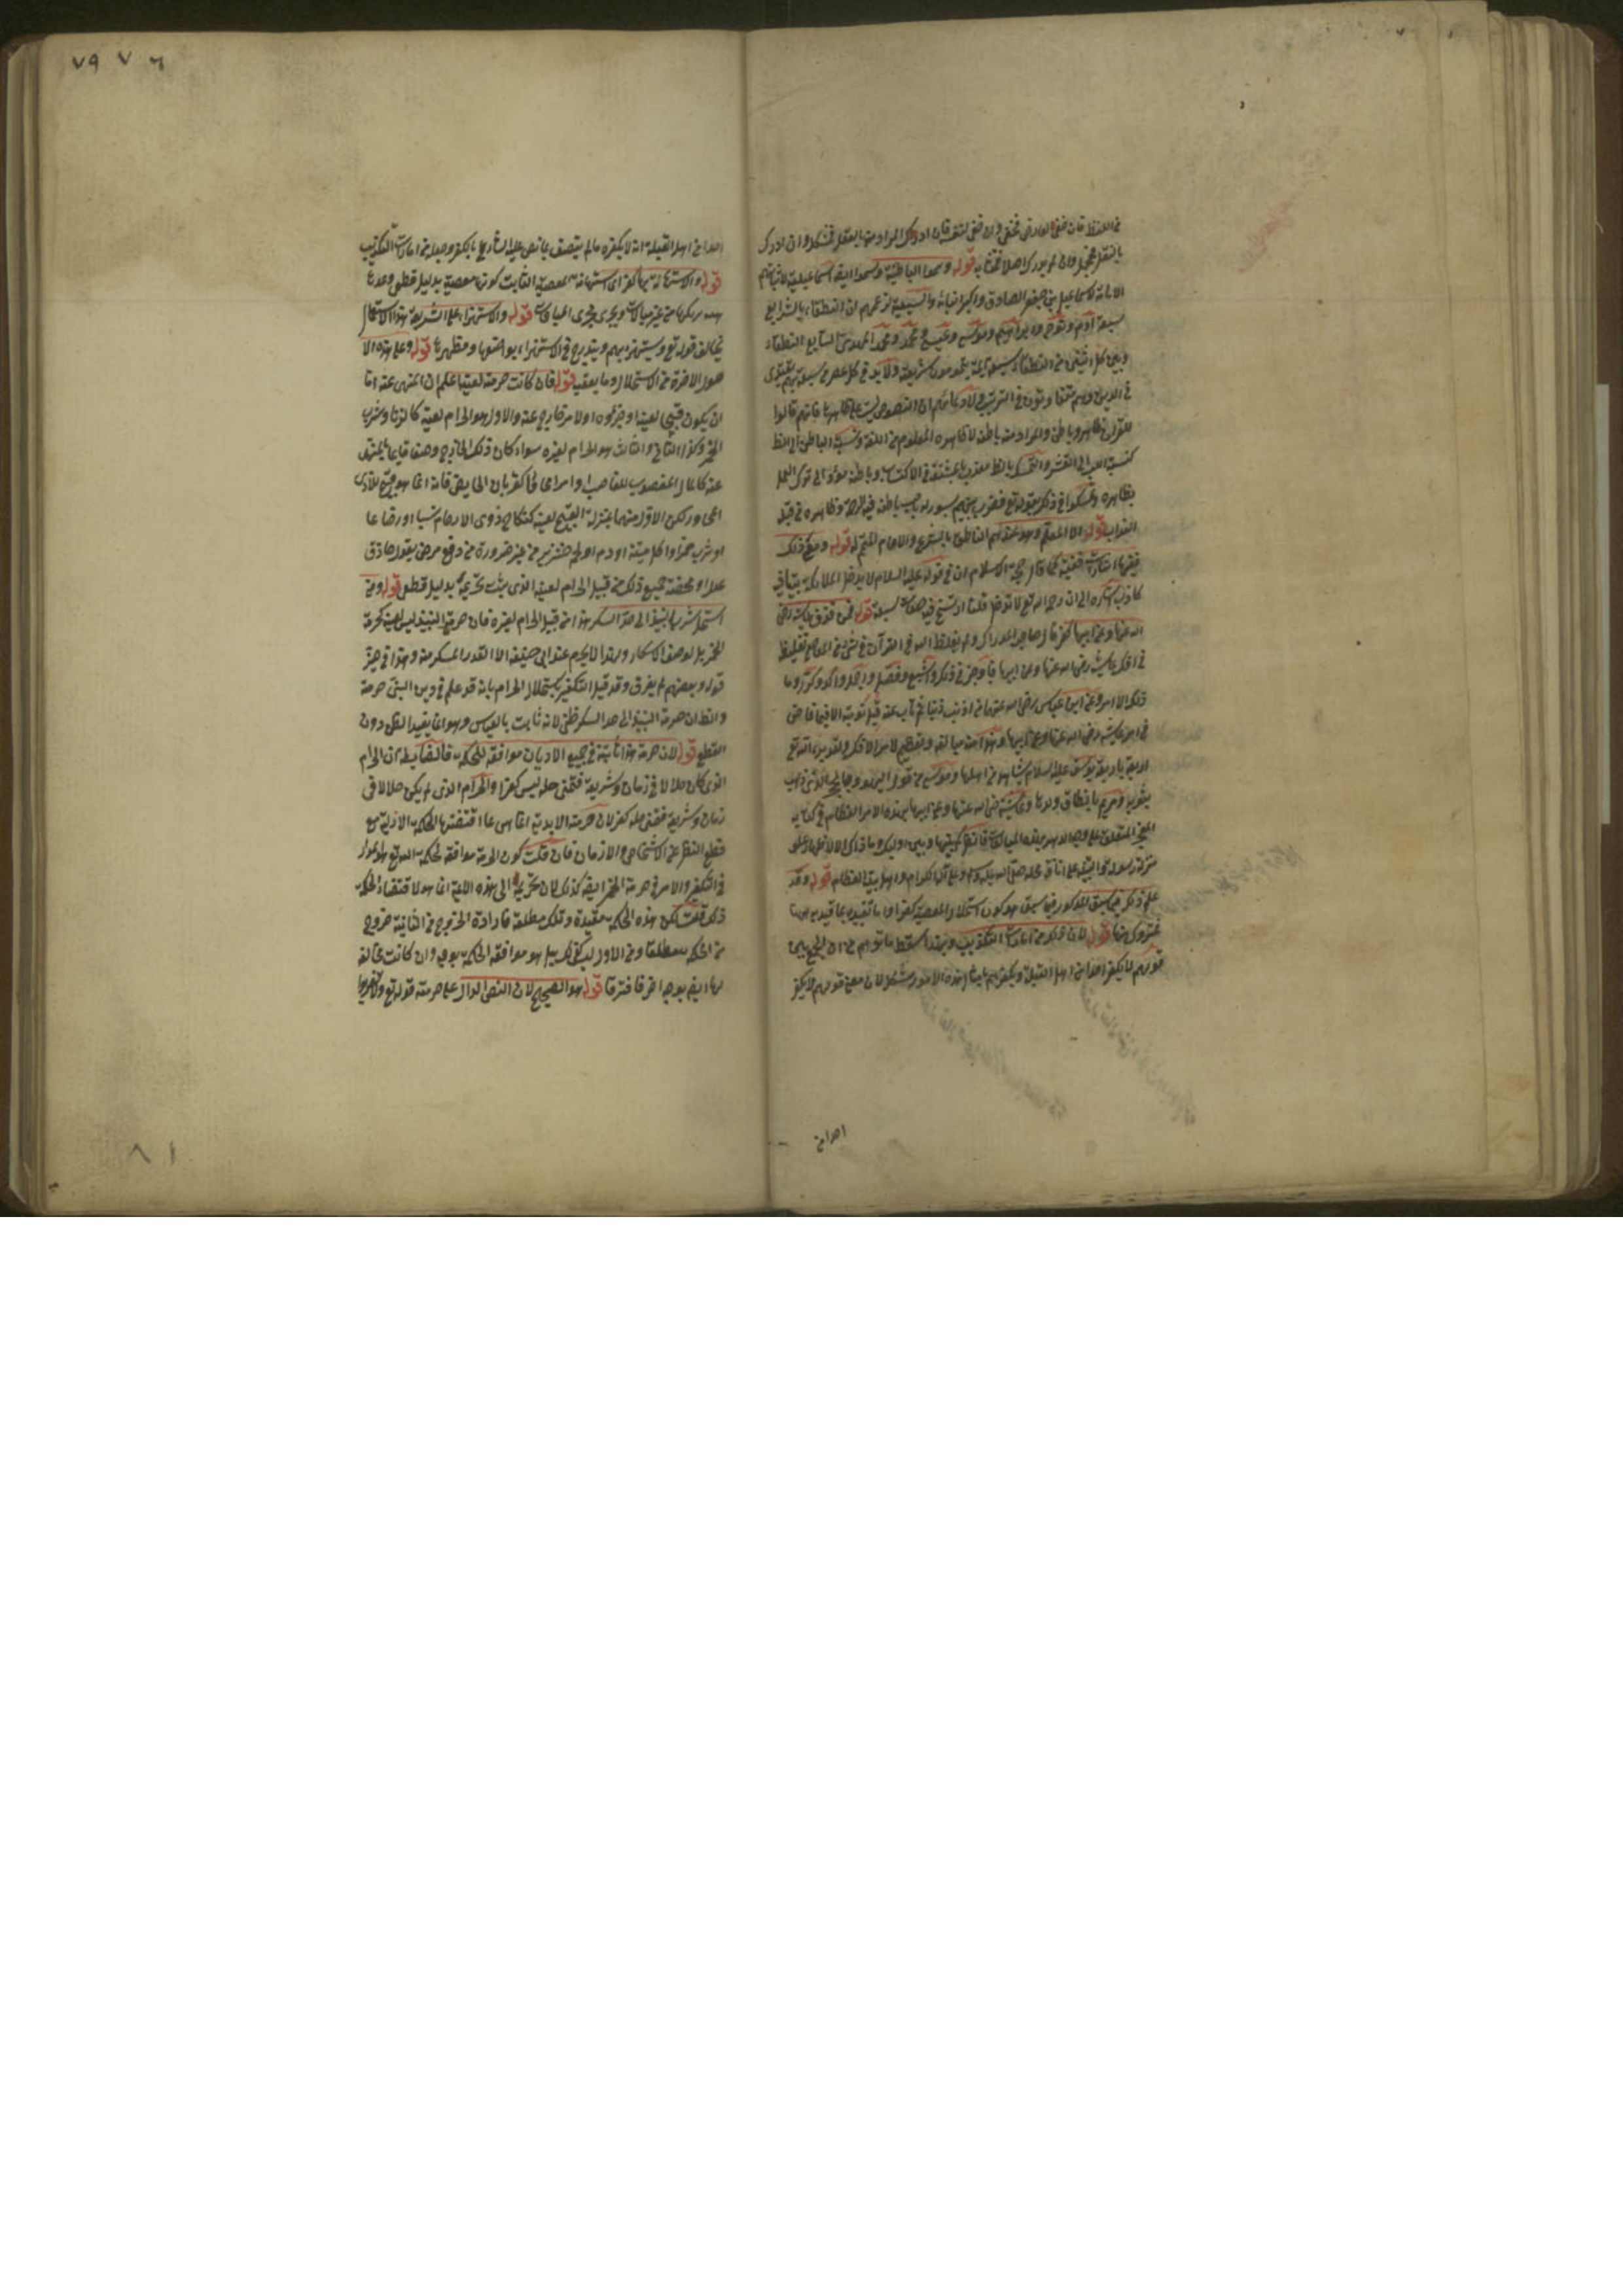 في اللفظ فان خفي لعارض فخفي وان خفي لنفسه فان ادرك المراد منه بالعقل فمشكل وان ادرك
بالنقل فمجمل وان لم يدرك اصلا فمتشابه قوله وسموا الباطنية وسموا ايضا اسماعيلية لاثباتهم
الامامة لاسماعيل بن جعفر الصادق وهو اكبر ابنائه والسبعية لزعمهم ان النطقاء بالشرايع
سبعة آدم ونوح وابراهيم وموسى وعيسى ومحمد ومحمد المهدي سابع النطقاء
وبين كل اثنين من النطقاء سبعة ائمة يتممون شريعته ولا بد في كل عصر من سبعة بهم يقتدى
في الدين وهم متفاوتون في الرتب لادعائهم ان النصوص ليست على ظاهرها فانهم قالوا
للقرآن ظاهر وباطن والمراد منه باطنه لا ظاهره المعلوم من اللغة ونسبة الباطن الى الظاهر
كنسبة اللب الى القشر والتمسك بالظاهر معذب بالمشقة في الاكتساب وباطنه مؤد الى ترك العمل
بظاهره وتمسكوا في ذلك بقوله تع فضرب بينهم بسور له باب باطنه فيه الرحمة وظاهره من قبله
العذاب قوله الا المعلم وهو عندهم الناطق بالشرع والامام قوله ومع ذلك
فيها اشارات خفية كما قال حجة الاسلام ان في قوله عليه السلام لا يدخل الملائكة بيتا فيه
كلب اشارة الى ان رحمة الله تع لا تدخل قلبا فيه صفات سبعية قوله فمن قذف عايشة رضي
الله عنها وعن ابيها كفر قال صاحب المدارك ولم يغلظ الله في القرآن في شيء من المعاصي تغليظه
في افك عايشة رضي الله عنها وعن ابيها فاوجز في ذلك واشبع وفصل واجمل واكد وكرر وما
ذلك الا لامر وعن ابن عباس رضي الله عنهما من اذنب ذنبا ثم تاب عنه قبل توبته الا من خاض
في امر عايشة رضي الله عنها وعن ابيها وهذا منه مبالغة وتعظيم لامر الافك ولقد برأ الله تع
اربعة باربعة يوسف عليه السلام بشاهد من اهلها وموسى من قول اليهود فيه بالحجر الذي ذهب
بثوبه ومريم بانطاق ولدها وعايشة رضي الله عنها وعن ابيها بهذه الامر العظام في كتابه
المعجز المتلو على وجه الدهر بهذه المبالغات فانظر كم بينها وبين اولئك وما ذاك الا لاظهار علو
منزلة رسوله والتنبيه على انافة محله صلى الله عليه وسلم وعلى آله الكرام واهل بيته العظام قوله وقد
علم ذلك فيما سبق المذكور فيما سبق هو كون استحلال المعصية كفرا وما تقييده بما قيد به هنا
فمتروك هنا قوله لان ذلك من امارات التكذيب وبهذا سقط ما توهم من ان الجمع بين
قولهم لا يكفر احد من اهل القبلة ويكفرهم بامثال هذه الامور مشكل لان معنى قولهم لا يكفر
احد من
٧٩ ٧ ٦
احد من اهل القبلة انه لا يكفره ما لم يتصف بما نص عليه الشارع بالكفر وجعله من امارات التكذيب
قوله والاستهانة بها كفر اي استهانة المعصية الثابت كونها معصية بدليل قطعي وعدها
هينة يرتكبها من غير مبالاة ويجري مجرى المباحات قوله والاستهزاء على الشريعة هذا الاستعمال
يخالف قوله تع ويستهزئ بهم ويندرج في الاستهزاء قوله وعلى هذه الا
صول الاخرة من الاستحلال وما يعقبها قوله فان كانت حرمته لعينه اعلم ان المنهي عنه اما
ان يكون قبيحا لعينه او جزئه او لامر خارج عنه والاول هو الحرام لعينه كالزنا وشرب
الخمر وكذا الثاني والثالث هو الحرام لغيره سواء كان ذلك الخارج وصفا قايما بالمنهى
عنه كالمال المغصوب للغاصب او امرا مجاورا كقربان الحايض فانه انما هو قبيح للاذى
المجاور لكن الاول منهما بمنزلة القبيح لعينه كنكاح ذوي الارحام نسبا او رضاعا
او شرب خمرا واكل ميتة او دم او لحم خنزير من غير ضرورة من دفع مرض بقول حاذق
عدل او مخمصة جميع ذلك من قبيل الحرام لعينه الذي يثبت تحريمه بدليل قطعي قوله ومن
استحل شرب النبيذ الى حد السكر هذا من قبيل الحرام لغيره فان حرمة النبيذ ليس لعينه كحرمة
الخمر بل لوصف الاسكار ولهذا لا يحرم عند ابي حنيفة الا القدر المسكر منه وهذا في حيز
قوله وبعضهم لم يفرق وقد قيل التكفير باستحلال الحرام بانه قد علم في دين النبي حرمة
والظاهر ان حرمة النبيذ الى حد السكر ظني لانه ثابت بالقياس وهو انما يفيد الظن دون
القطع قوله لان حرمة هذا ثابتة في جميع الاديان موافقة للحكمة فالضابط ان الحرام
الذي كان حلالا في زمان وشريعة فتمنى حله ليس كفرا والحرام الذي لم يكن حلالا في
زمان وشريعة فتمنى حله كفر لان حرمته الابدية انما هي مما اقتضتها الحكمة الازلية مع
قطع النظر عن الاشخاص والازمان فان قلت كون الحرمة موافقة لحكمة الله تع هو المدار
في التكفير والامر في حرمة الخمر ايضا كذلك لان تحريمها الى هذه الامة انما هو لاقتضاء الحكمة
ذلك قلت لكن هذه الحكمة مقيدة وتلك مطلقة فارادة الخروج من الثانية خروج
من الحكمة مطلقا ومن الاول ليس كذلك بل هو موافقة الحكمة بوجه وان كانت مخالفة
لها ايضا بوجه آخر فافترقا قوله هو الصحيح لان النص الدال على حرمته قوله تع ولا تقربوها
٨١